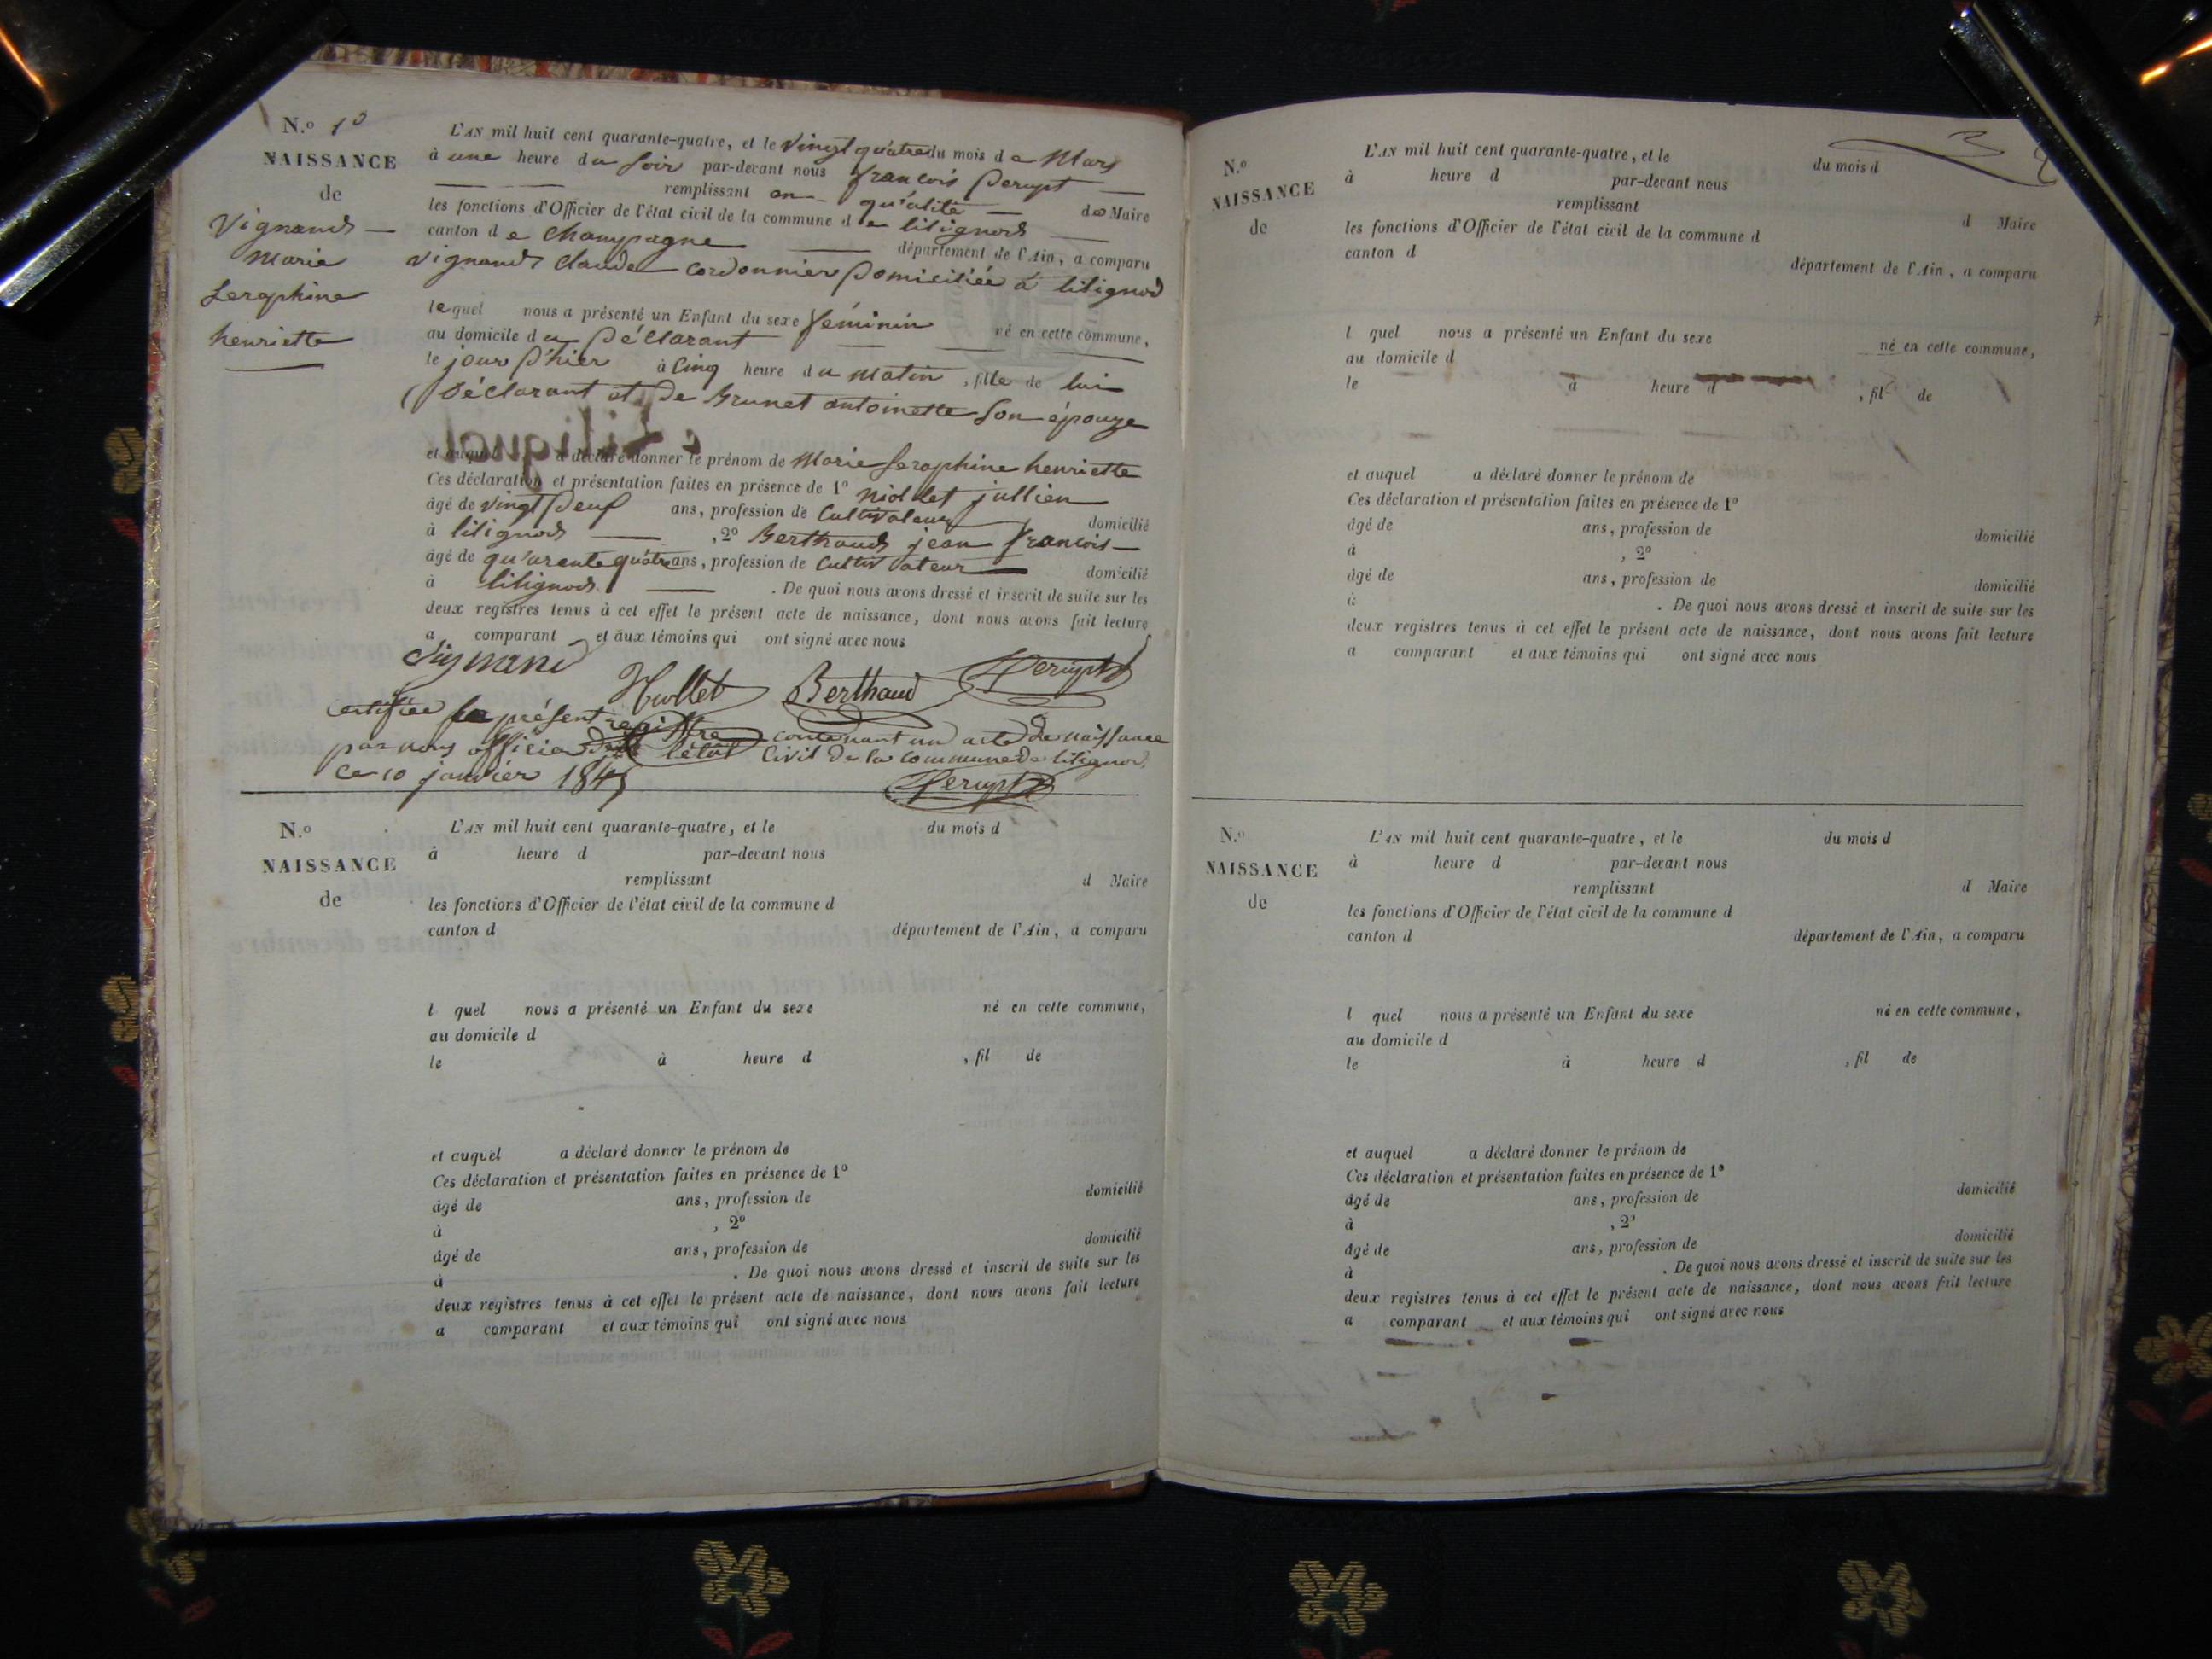 N.º 1º
NAISSANCE
de
Vignand
Marie
Seraphine
henriette
L'AN mil huit cent quarante-quatre, et le vingt quatre du mois de Mars
à une heure du Soir par-devant nous françois Perupt
remplissant en qu'alité de Maire
les fonctions d'Officier de l'état civil de la commune de lilignod
canton de Champagne département de l'Ain, a comparu
Vignand Claude cordonnier Domiciliée à lilignod
lequel nous a présenté un Enfant du sexe féminin né en cette commune,
au domicile du Déclarant
le jour D'hier à Cinq heure du matin, fille de lui
Déclarant et De Brunet antoinette Son épouze
et auquel a déclaré donner le prénom de Marie Seraphine henriette
Ces déclaration et présentation faites en présence de 1º jullien
âgé de vingt neuf ans, profession de Cultivateur domicilié
à lilignod, 2º Berthaud jean françois
âgé de qu'arente quatre ans, profession de Cultivateur domicilié
à lilignod. De quoi nous avons dressé et inscrit de suite sur les
deux registres tenus à cet effet le présent acte de naissance, dont nous avons fait lecture
a comparant et aux témoins qui ont signé avec nous
Vignand Berthaud Perupt
certifiée le présent registre contenant un acte De naissance
par nous officier De l'état Civil De la Commune De lilignod
Ce 10 janvier 1845
Perupt
N.º
NAISSANCE
de
L'AN mil huit cent quarante-quatre, et le du mois d
à heure d par-devant nous
remplissant d Maire
les fonctions d'Officier de l'état civil de la commune d
canton d département de l'Ain, a comparu
l quel nous a présenté un Enfant du sexe né en cette commune,
au domicile d
le à heure d , fil de
et auquel a déclaré donner le prénom de
Ces déclaration et présentation faites en présence de 1º
âgé de ans, profession de domicilié
à , 2º
âgé de ans, profession de domicilié
à . De quoi nous avons dressé et inscrit de suite sur les
deux registres tenus à cet effet le présent acte de naissance, dont nous avons fait lecture
a comparant et aux témoins qui ont signé avec nous
3
N.º
NAISSANCE
de
L'AN mil huit cent quarante-quatre, et le du mois d
à heure d par-devant nous
remplissant d Maire
les fonctions d'Officier de l'état civil de la commune d
canton d département de l'Ain, a comparu
l quel nous a présenté un Enfant du sexe né en cette commune,
au domicile d
le à heure d , fil de
et auquel a déclaré donner le prénom de
Ces déclaration et présentation faites en présence de 1º
âgé de ans, profession de domicilié
à , 2º
âgé de ans, profession de domicilié
à . De quoi nous avons dressé et inscrit de suite sur les
deux registres tenus à cet effet le présent acte de naissance, dont nous avons fait lecture
a comparant et aux témoins qui ont signé avec nous
N.º
NAISSANCE
de
L'AN mil huit cent quarante-quatre, et le du mois d
à heure d par-devant nous
remplissant d Maire
les fonctions d'Officier de l'état civil de la commune d
canton d département de l'Ain, a comparu
l quel nous a présenté un Enfant du sexe né en cette commune,
au domicile d
le à heure d , fil de
et auquel a déclaré donner le prénom de
Ces déclaration et présentation faites en présence de 1º
âgé de ans, profession de domicilié
à , 2º
âgé de ans, profession de domicilié
à . De quoi nous avons dressé et inscrit de suite sur les
deux registres tenus à cet effet le présent acte de naissance, dont nous avons fait lecture
a comparant et aux témoins qui ont signé avec nous